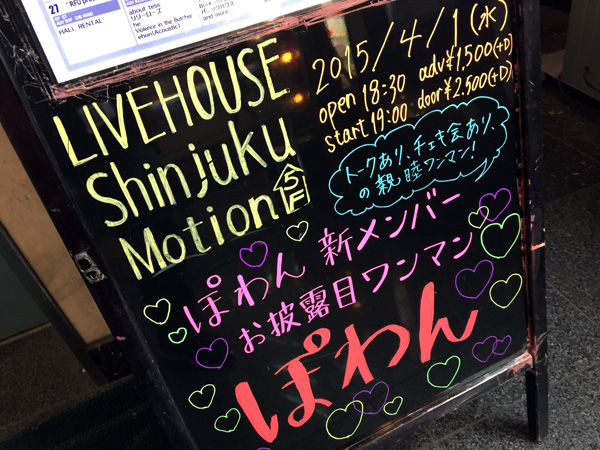 27
HALL RENTAL
about tess
リリーローズ
the
Violence in the Butcher
ehon(Acoustic)
LIVEHOUSE
Shinjuku
Motion 5F
2015/4/1(水)
open 18:30 adv¥1,500(+D)
start 19:00 door¥2,500(+D)
トークあり、チェキ会あり、
の親睦ワンマン!
ぽわん 新メンバー
お披露目ワンマン
ぽわん